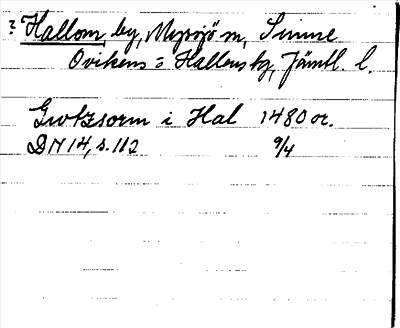 ? Hallom, by, Myssjö sn, Sunne
Ovikens o Hallens tg, Jämtl. l.
Gwtzsorm i Hal 1480 or.
DN 14, s. 112 9/4